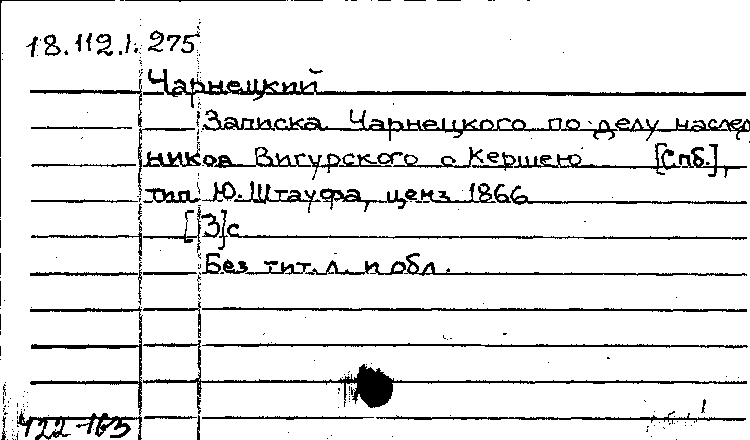 18.112.1.275
Чарнецкий
Записка Чарнецкого по делу наслед
ников Вигурского с Кершею [Спб.],
тип. Ю. Штауфа, ценз 1866
[3]с
Без тит. л. и обл.
422-165